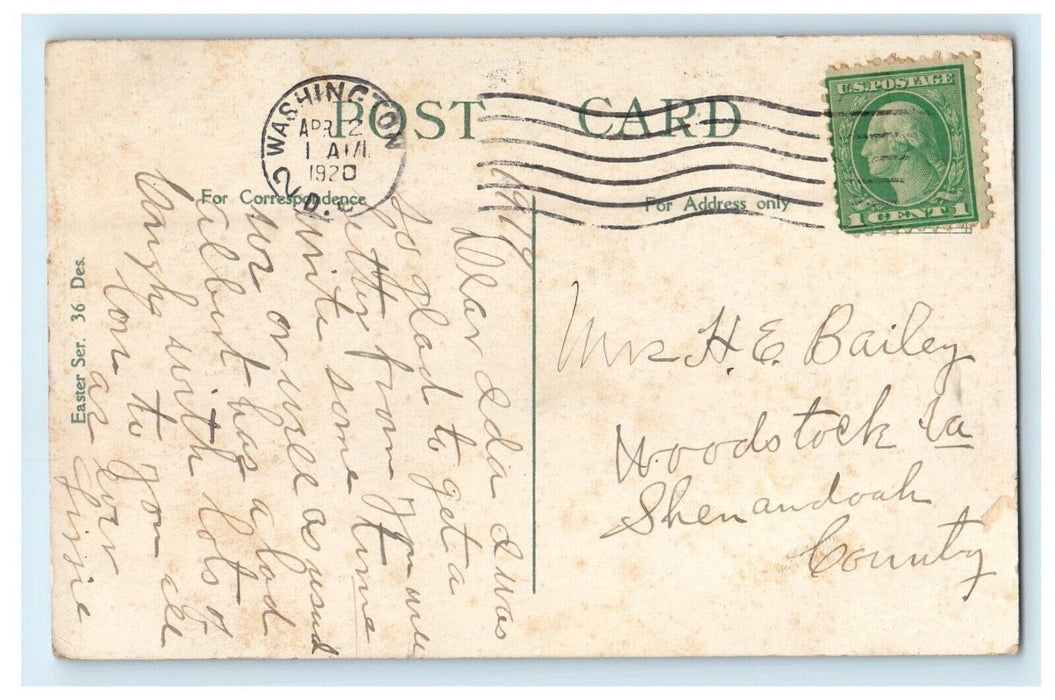 POST CARD
WASHINGTON
APR 2
1 AM
1920
2 D.C.
U.S. POSTAGE
1 CENT 1
For Correspondence
For Address only
Easter Ser. 36 Des.
Dear Ida I was
So glad to get a
letter from you will
write some time
our or use as usual
Albert has a bad
Cough with lots of
love to you all
as ever
Mrs H. E. Bailey
Woodstock Va
Shenandoah
County